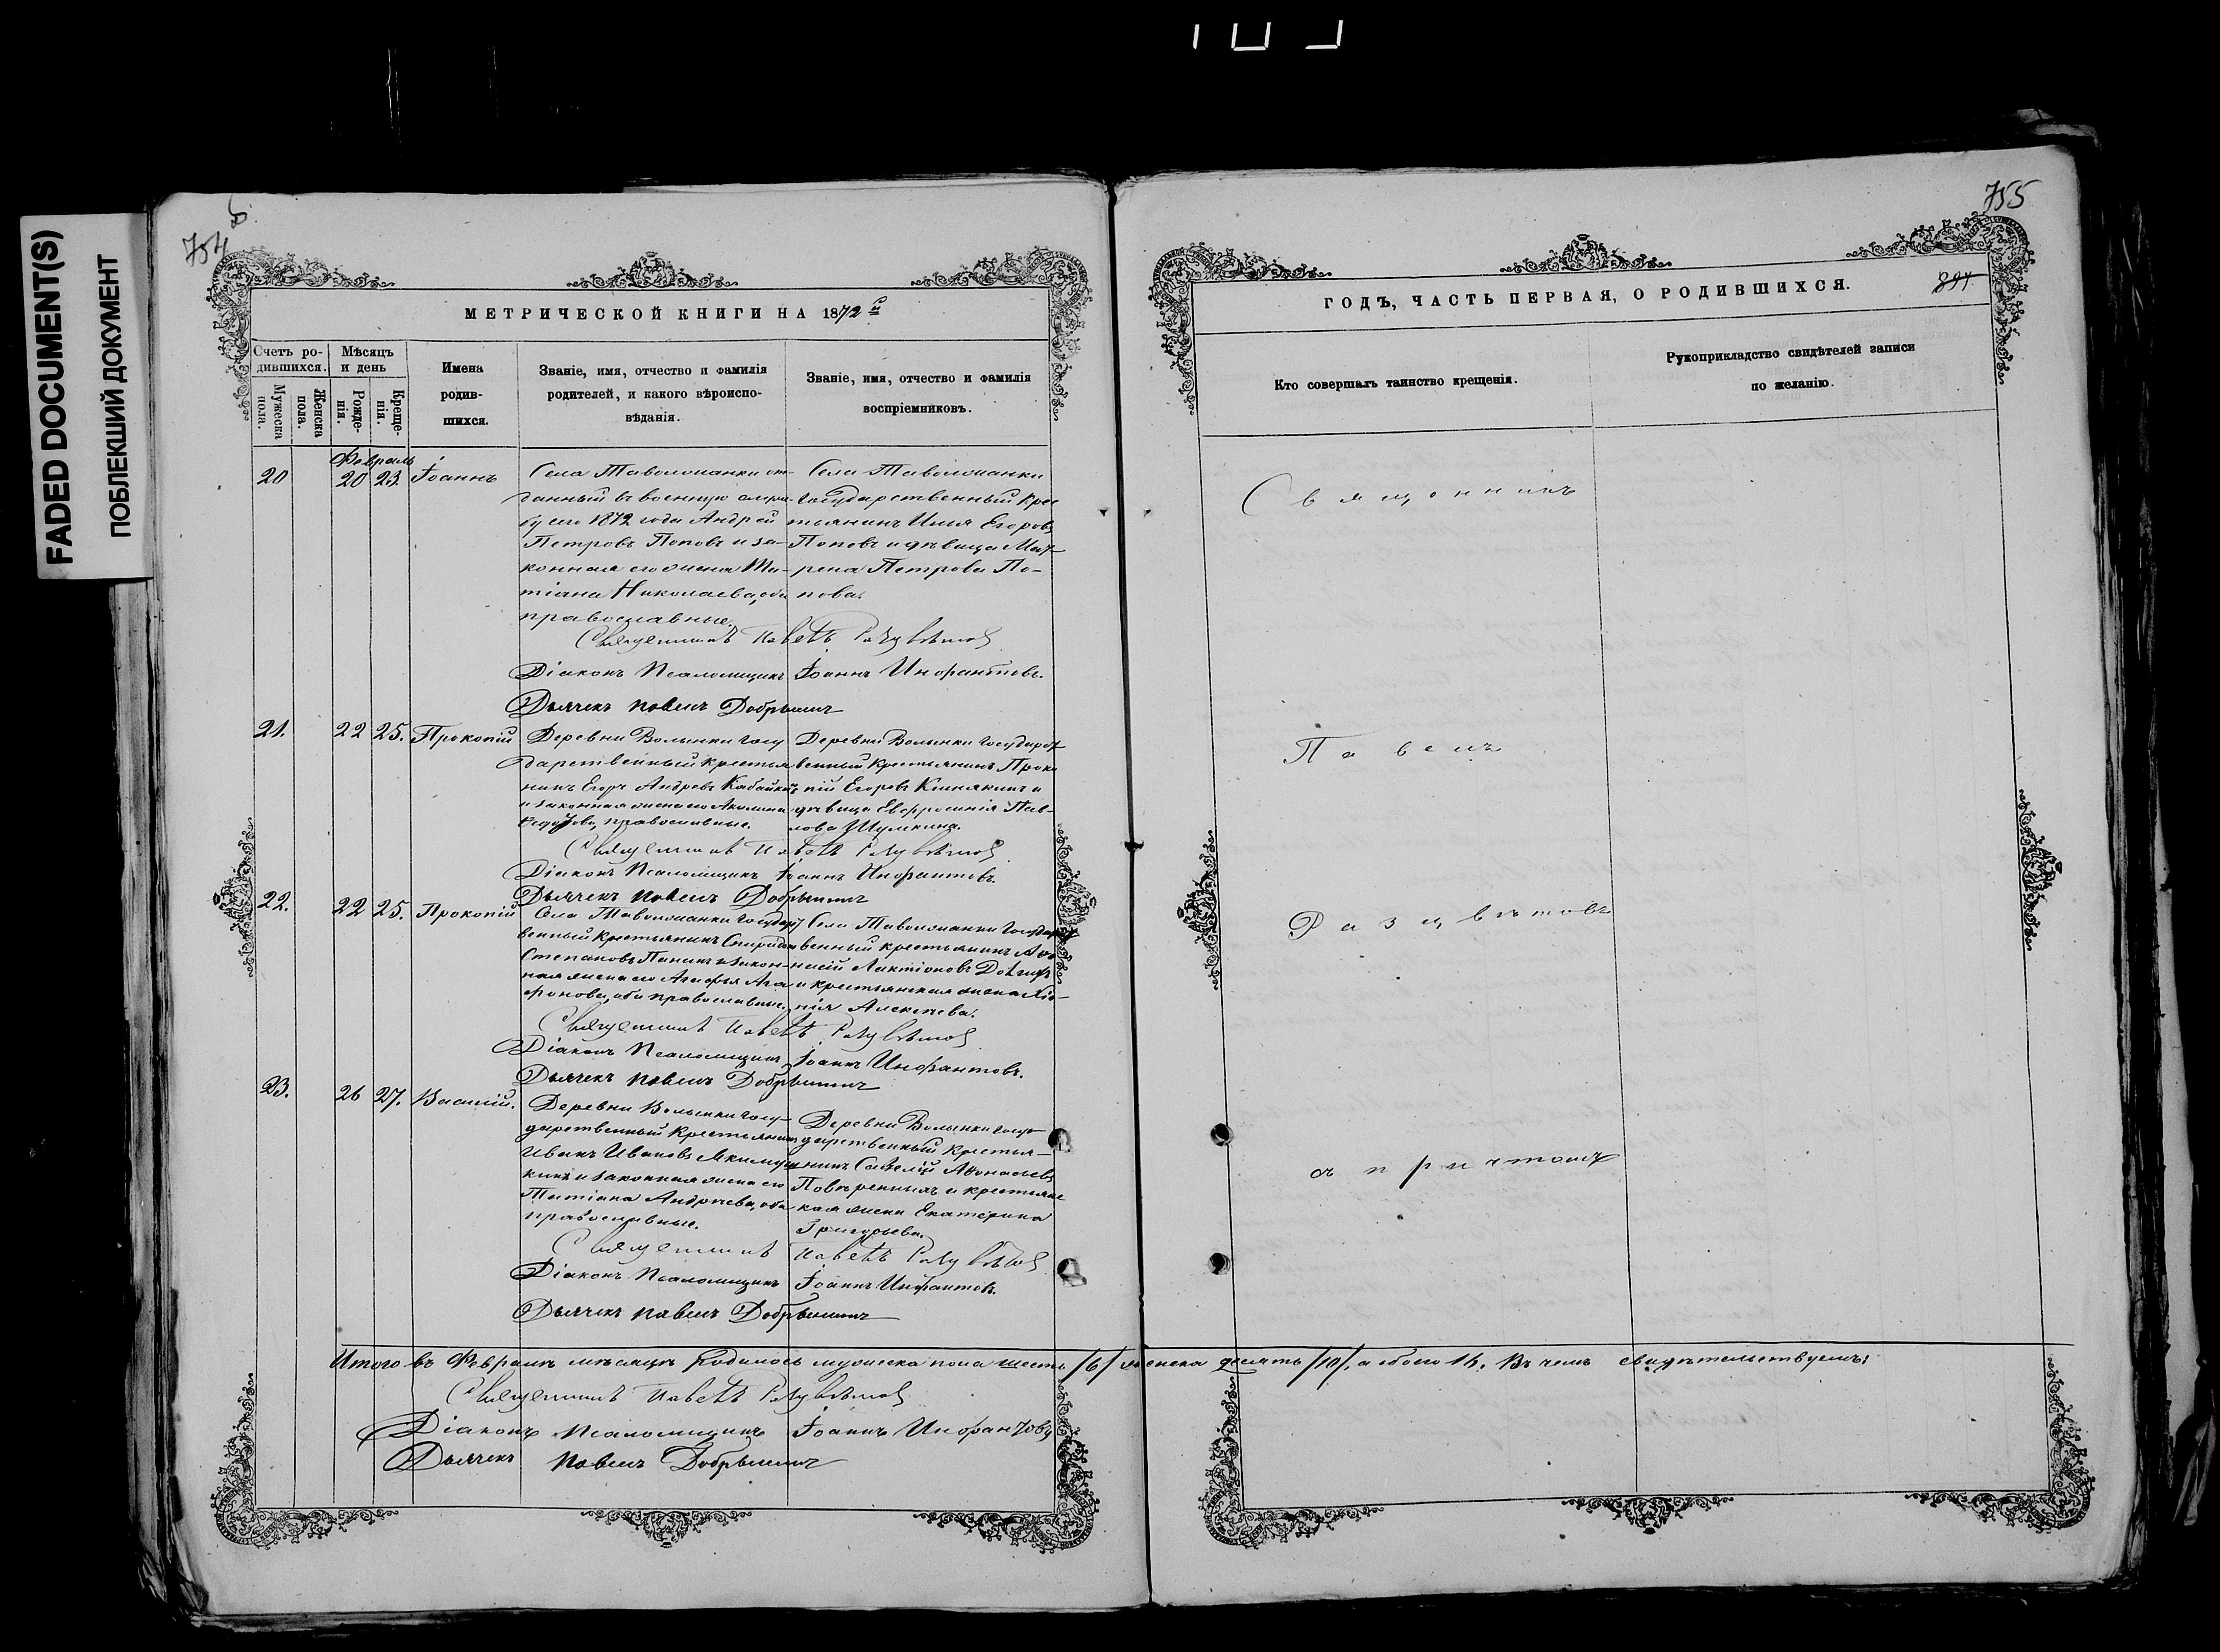 FADED DOCUMENT(S)
ПОБЛЕКШИЙ ДОКУМЕНТ
754
755
МЕТРИЧЕСКОЙ КНИГИ НА 1872 й
Счетъ ро-
дившихся.
Мѣсяцъ
и день
Мужеска
пола.
Женска
пола.
Рожде-
нія.
Креще-
нія.
Имена
родив-
шихся.
Званіе, имя, отчество и фамилія
родителей, и какого вѣроиспо-
вѣданія.
Званіе, имя, отчество и фамилія
воспріемниковъ.
Февраль
20
20 23.
Іоаннъ
Села Таволожанки от-
данный въ военную служ-
бу сего 1872 года Андрей
Петровъ Поповъ и за-
конная его жена Та-
тіана Николаева, оба
православные.
Села Таволожанки
Государственный крес
тьянинъ Илья Егоровъ
Поповъ и дѣвица Мат-
рена Петрова По-
пова.
Священникъ Павелъ Разцвѣтовъ
Діаконъ Псаломщикъ Іоаннъ Инфантовъ.
Дьячекъ Павелъ Добрынинъ
21.
22 25.
Прокопій
Деревни Волынки госу
дарственный крестья
нинъ Егоръ Андреевъ Кабайкинъ
и законная жена его Акилина
Федотова, православные.
Деревни Волынки государст
венный крестьянинъ Проко
пій Егоровъ Княжкинъ и
дѣвица Евфросинія Пав-
лова Шумкина.
Священникъ Павелъ Разцвѣтовъ
Діаконъ Псаломщикъ Іоаннъ Инфантовъ.
Дьячекъ Павелъ Добрынинъ
22.
22 25.
Прокопій
Села Таволожанки государст
венный крестьянинъ Спиридонъ
Степановъ Панинъ и закон-
ная жена его Агафья Ага
фонова, оба православные.
Села Таволожанки государст
венный крестьянинъ Афо
насій Лактіоновъ
и крестьянская жена Хіо-
нія Алексѣева.
Священникъ Павелъ Разцвѣтовъ
Діаконъ Псаломщикъ Іоаннъ Инфантовъ.
Дьячекъ Павелъ Добрынинъ
23.
26 27.
Василій.
Деревни Волынки госу-
дарственный крестьянинъ
Иванъ Ивановъ Якимуш
кинъ и законная жена его
Татіана Андреева, оба
православные.
Деревни Волынки госу-
дарственный крестья-
нинъ Савелій Афонасьевъ
Повѣренныхъ и крестьянс
кая жена Екатерина
Григорьева.
Священникъ Павелъ Разцвѣтовъ
Діаконъ Псаломщикъ Іоаннъ Инфантовъ.
Дьячекъ Павелъ Добрынинъ
Итого въ Февралѣ мѣсяцѣ родилось мужеска пола шесть /6/ женска десять /10/. а обоего 16. Въ чемъ свидѣтельствуемъ:
Священникъ Павелъ Разцвѣтовъ
Діаконъ Псаломщикъ Іоаннъ Инфантовъ
Дьячекъ Павелъ Добрынинъ
ГОДЪ, ЧАСТЬ ПЕРВАЯ, О РОДИВШИХСЯ.
Кто совершалъ таинство крещенія.
Рукоприкладство свидѣтелей записи
по желанію.
Священникъ
Павелъ
Разцвѣтовъ
съ причтомъ